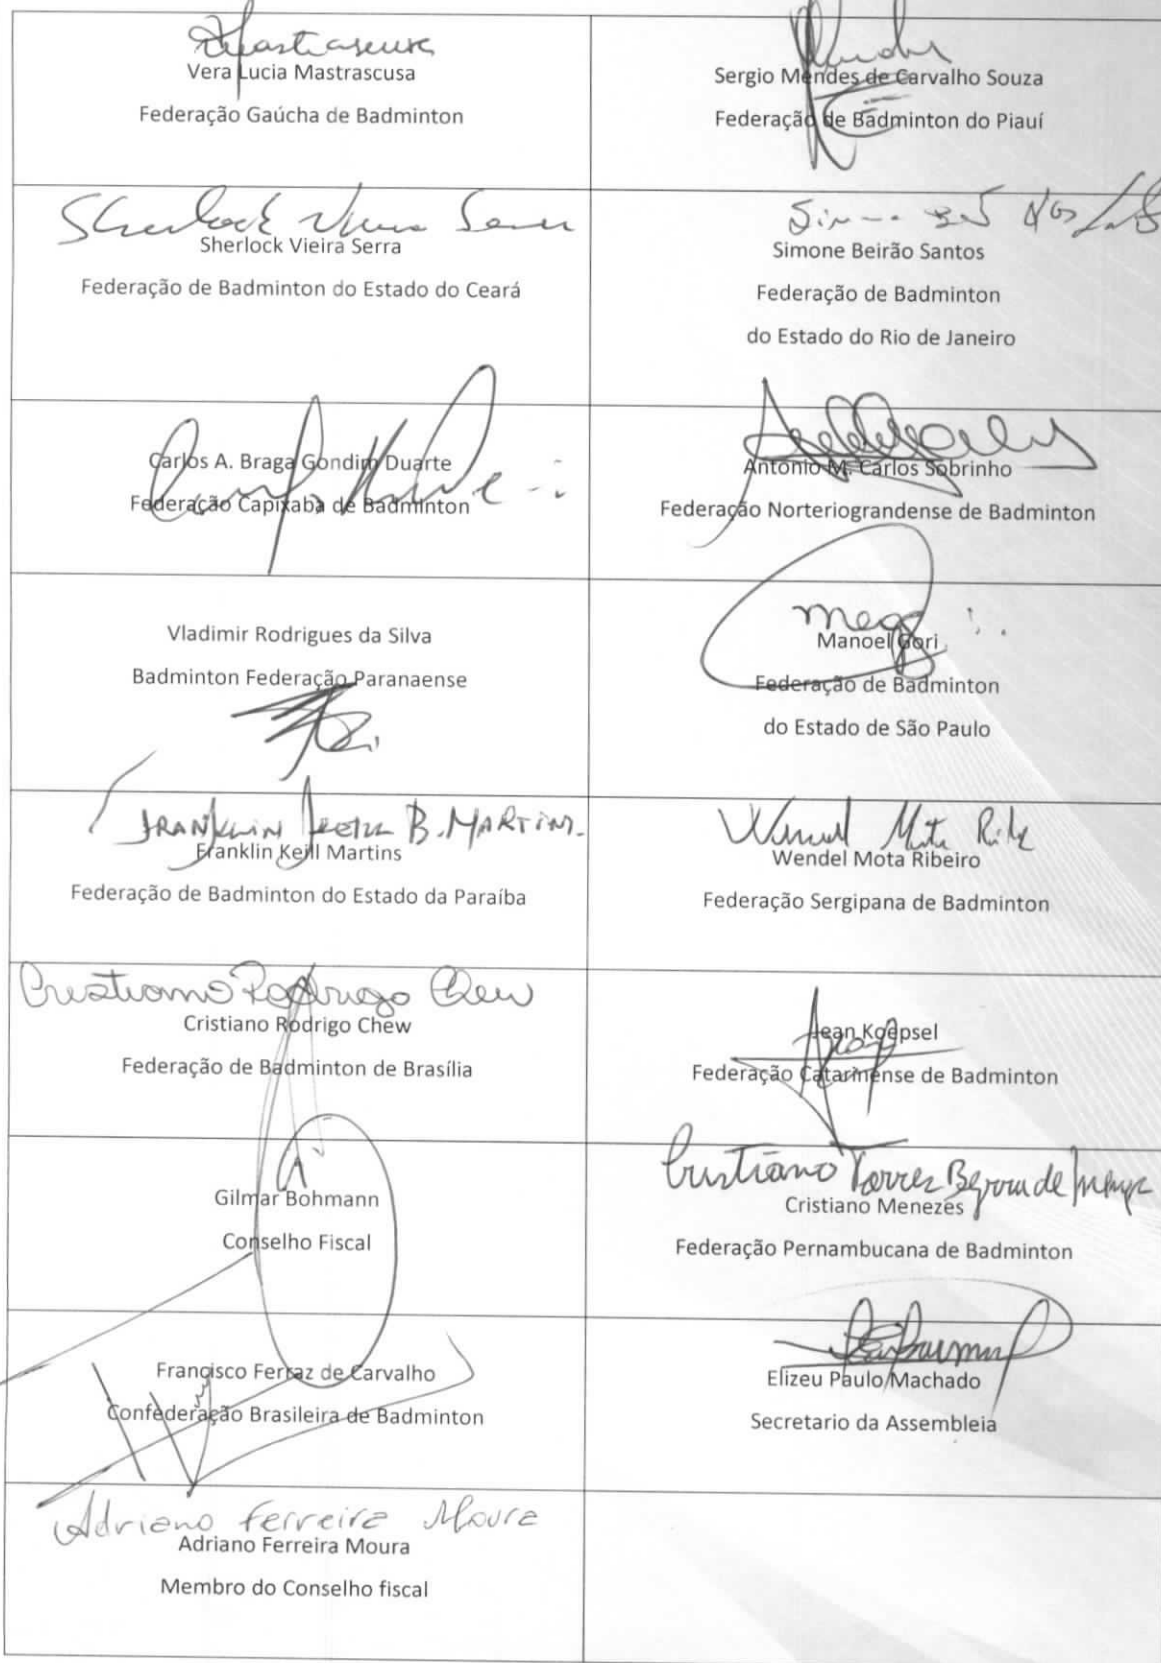 Vera Lucia Mastrascusa
Federação Gaúcha de Badminton
Sergio Mendes de Carvalho Souza
Federação de Badminton do Piauí
Sherlock Vieira Serra
Sherlock Vieira Serra
Federação de Badminton do Estado do Ceará
Simone Beirão Santos
Federação de Badminton
do Estado do Rio de Janeiro
Carlos A. Braga Gondim Duarte
Federação Capixaba de Badminton
Antonio M. Carlos Sobrinho
Federação Norteriograndense de Badminton
Vladimir Rodrigues da Silva
Badminton Federação Paranaense
Manoel Gori
Federação de Badminton
do Estado de São Paulo
FRANKLIN B. MARTINS.
Franklin Keill Martins
Federação de Badminton do Estado da Paraíba
Wendel Mota
Wendel Mota Ribeiro
Federação Sergipana de Badminton
Cristiano Rodrigo Chew
Cristiano Rodrigo Chew
Federação de Badminton de Brasília
Jean Koepsel
Federação Catarinense de Badminton
Gilmar Bohmann
Conselho Fiscal
Cristiano Torres Bezerra de
Cristiano Menezes
Federação Pernambucana de Badminton
Francisco Ferraz de Carvalho
Confederação Brasileira de Badminton
Elizeu Paulo Machado
Secretario da Assembleia
Adriano Ferreira Moura
Adriano Ferreira Moura
Membro do Conselho fiscal